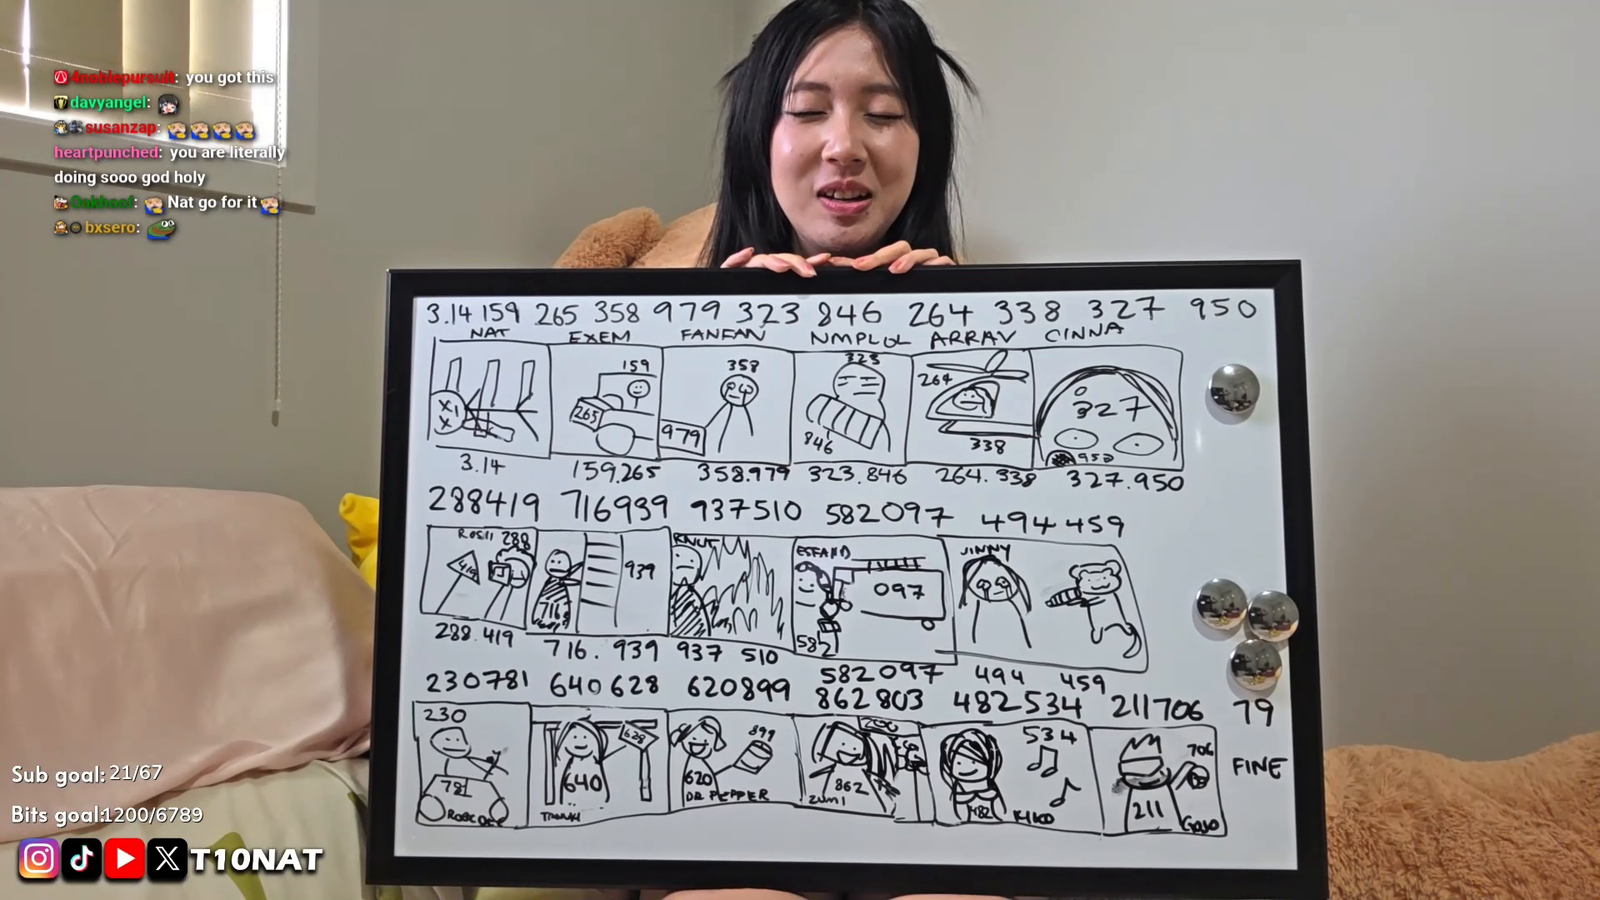 4noblepursuit: you got this
davyangel:
susanzap:
heartpunched: you are literally
doing sooo god holy
Oakhoof: Nat go for it
bxsero:
3.14 159 265 358 979 323 846 264 338 327 950
NAT EXEM FANFAN NMPLOL ARRAV CINNA
159 358 323 264 327
265 979 846 338 950
3.14 159.265 358.979 323.846 264.338 327.950
288419 716939 937510 582097 494459
288 KNUT ESFAND JINNY
419 716 939 582 097
288.419 716.939 937 510 582097 494 459
230781 640628 620899 862803 482534 211706 79
230 628 899 534 706
781 640 620 862 482 211 FINE
DR PEPPER ZUMI KIKO GOJO
Sub goal: 21/67
Bits goal:1200/6789
T10NAT